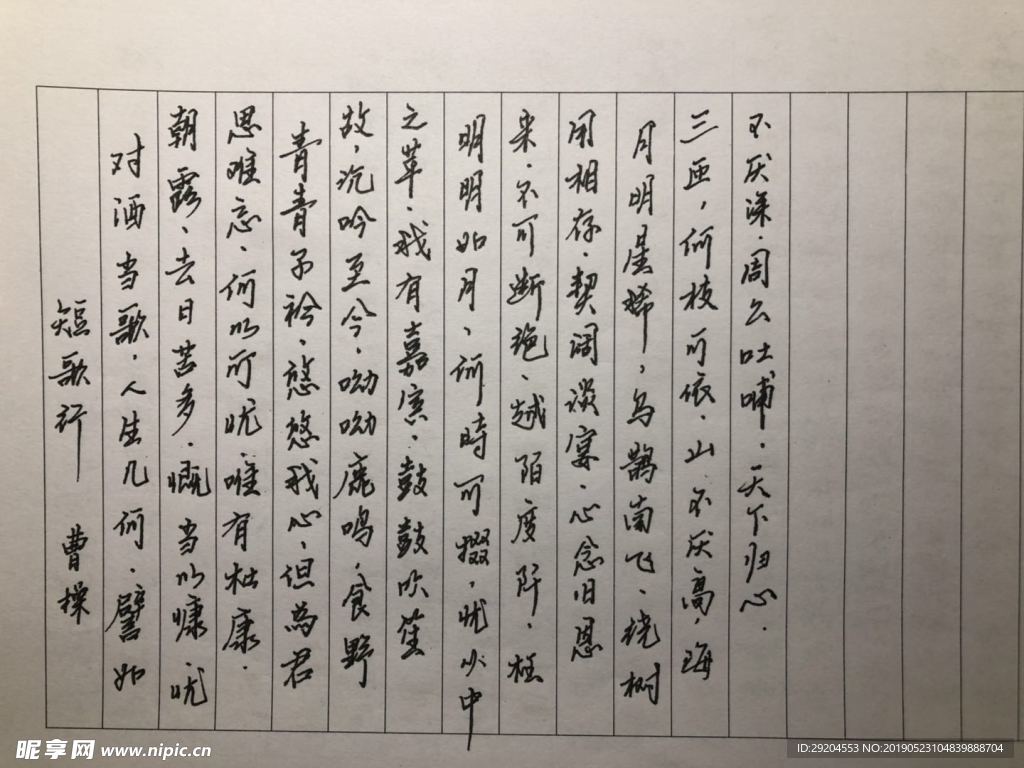 短歌行 曹操
对酒当歌．人生几何．譬如
朝露、去日苦多．慨当以慷．忧
思难忘、何以可忧．唯有杜康．
青青子衿、悠悠我心，但為君
故，沉吟至今、呦呦鹿鸣，食野
之苹、我有嘉宾，鼓鼓吹笙
明明如月、何時可掇，忧以中
来．不可断绝、越陌度阡，枉
用相存．契阔谈宴、心念旧恩
月明星稀，乌鹊南飞、绕树
三匝，何枝可依．山不厌高，海
不厌深．周公吐哺．天下归心．
昵享网 www.nipic.cn
ID:29204553 NO:20190523104839888704